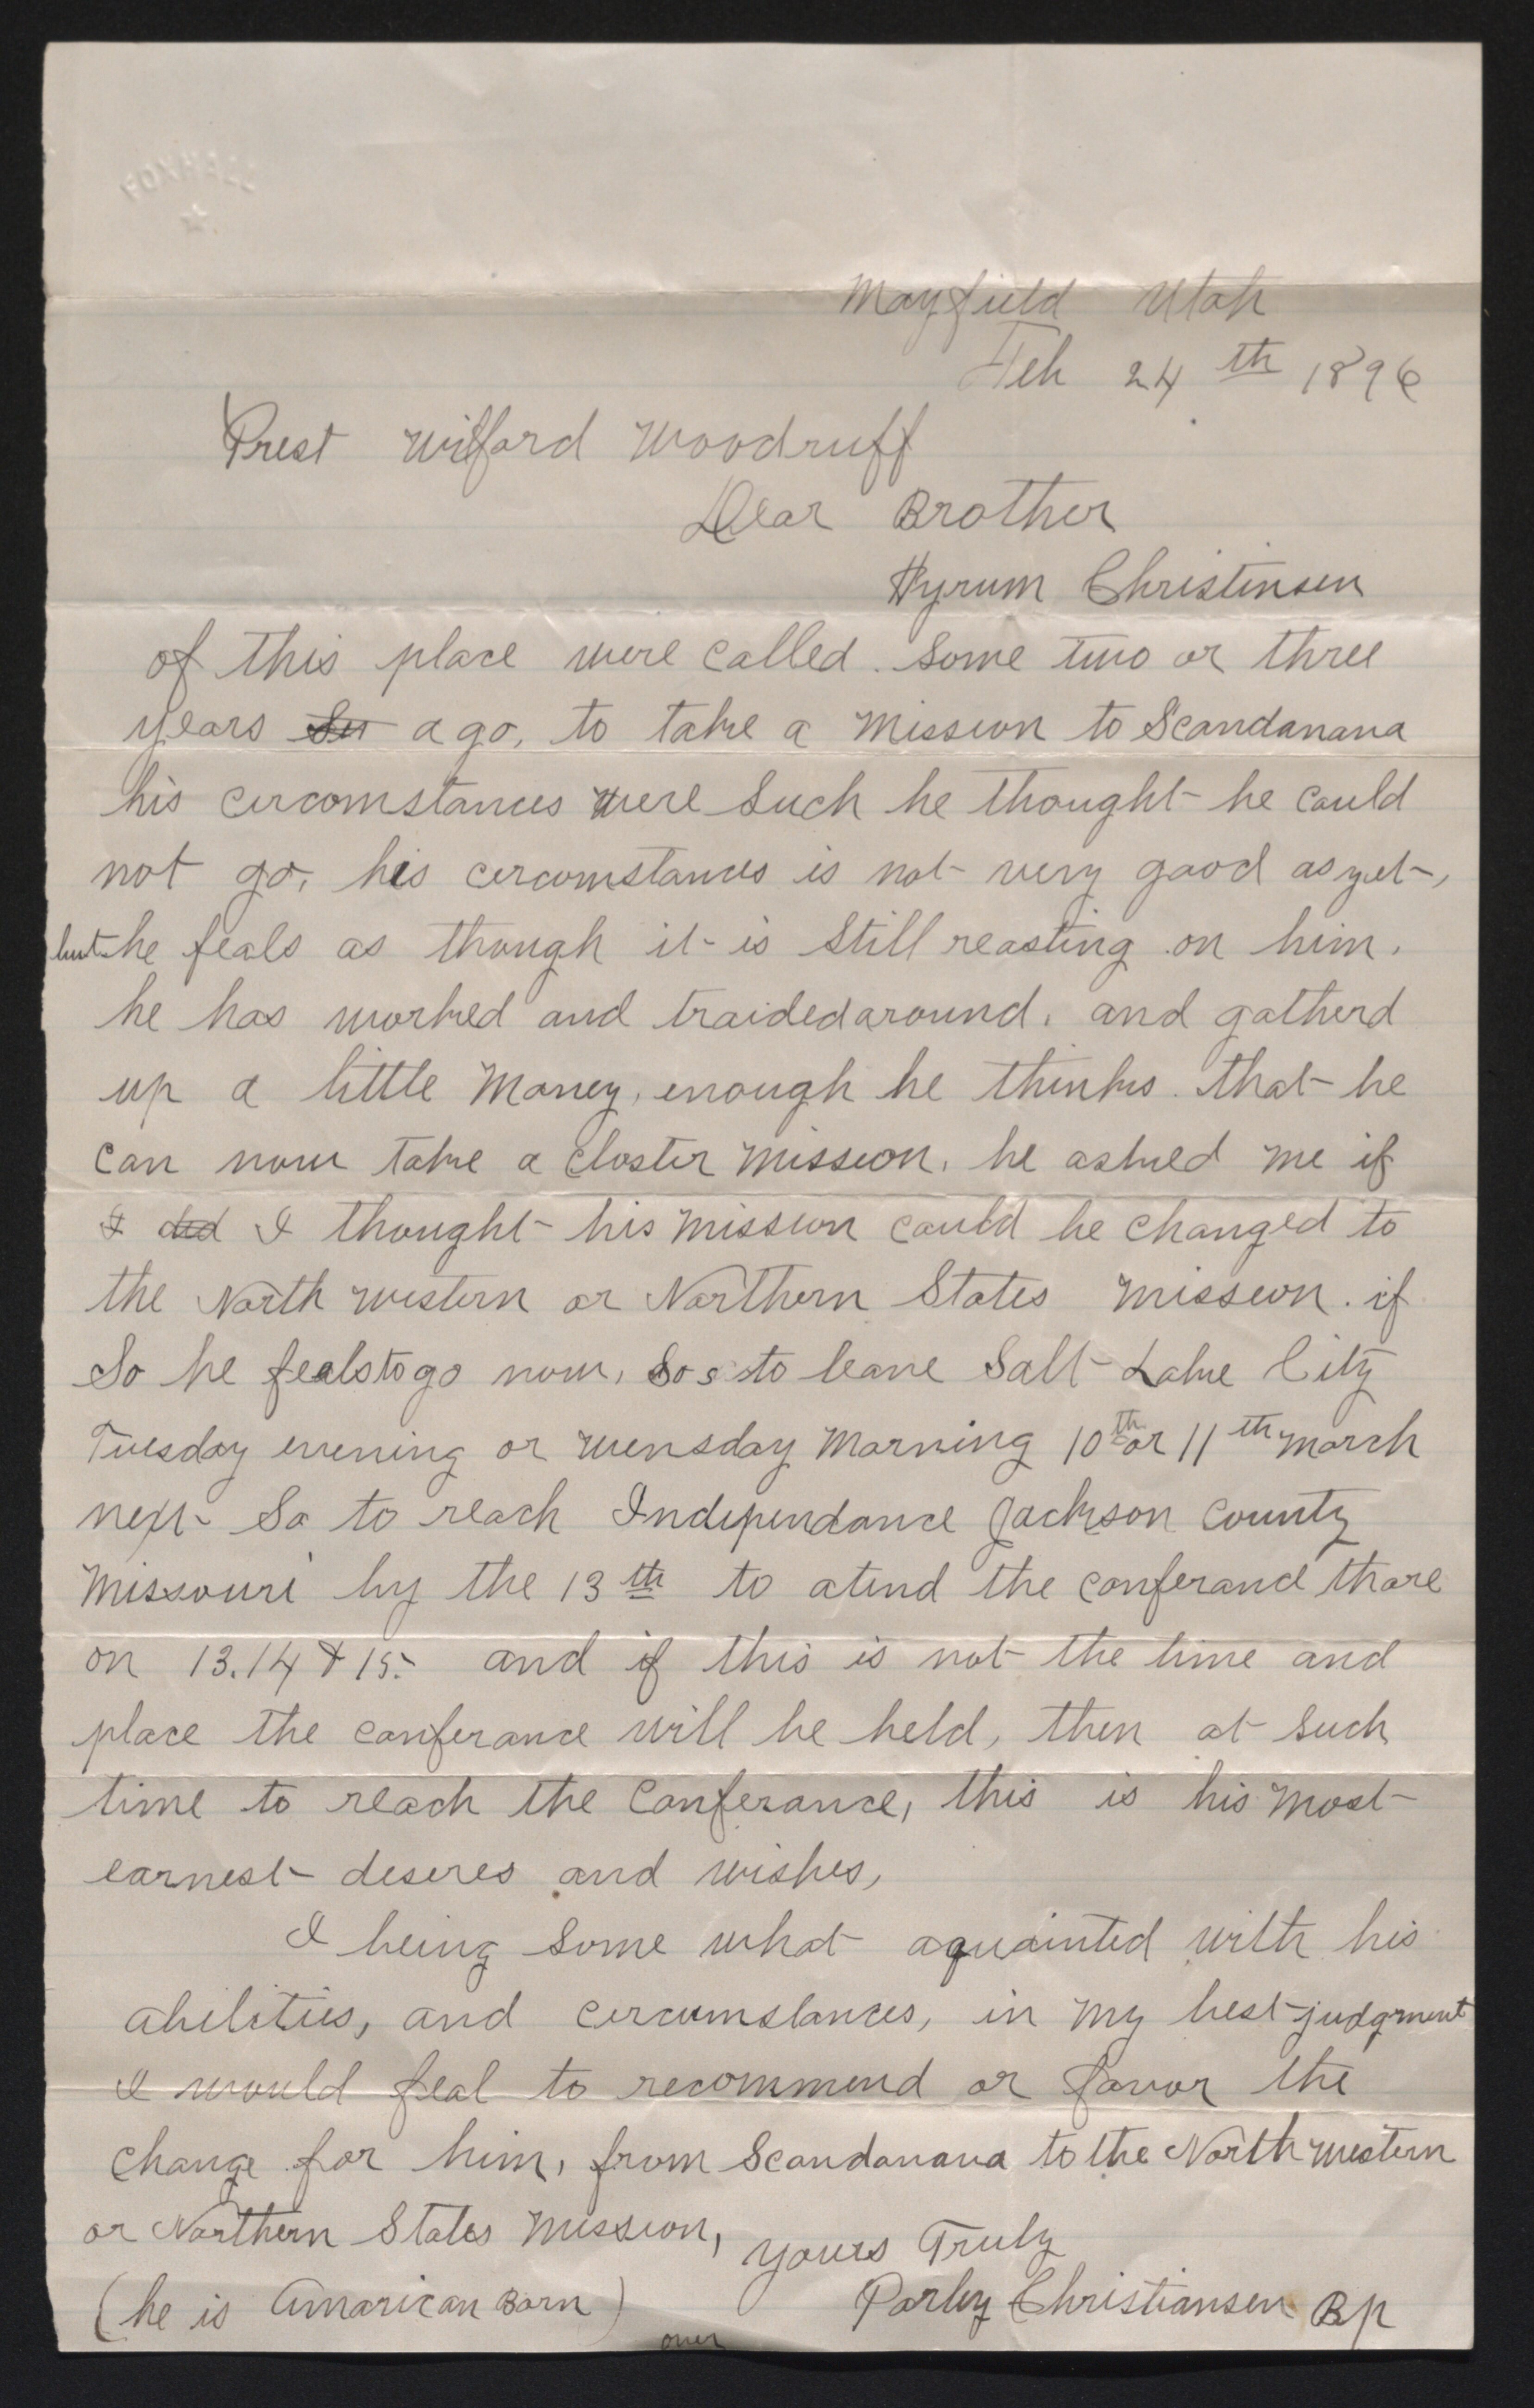 FOXHALL
Mayfield Utah
Feb 24th 1896
Prest Wilford Woodruff
Dear Brother
Hyrum Christinsen
of this place were called. Some two or three
years ago, to take a Mission to Scandanava
his circomstances were Such he thought he could
not go, his cercomstances is not very good as yet,
but he feals as though it is Still reasting on him.
he has worked and traided around. and gatherd
up a little Money, enough he thinks that he
can now take a closter Mission. he asked me if
I did I thought his Mission could be changed to
the North western or Northern States Mission. if
So he feals to go now, So s to leave Salt Lake City
Tuesday evening or Wensday Morning 10th or 11th March
next So to reach Independance Jackson County
Missouri by the 13th to atend the conferance thare
on 13.14 & 15. and if this is not the time and
place the conferance will be held, then at Such
time to reach the Conferance, this is his Most
earnest deseres and wishes,
I being Some what aquainted with his
abilities, and cercumstances, in My best judgment
I would feal to recommend or favor the
change for him, from Scandanava to the North western
or Northern States Mission,
Yours Truly
(he is Amarican Born)
Parley Christiansen Bp
over